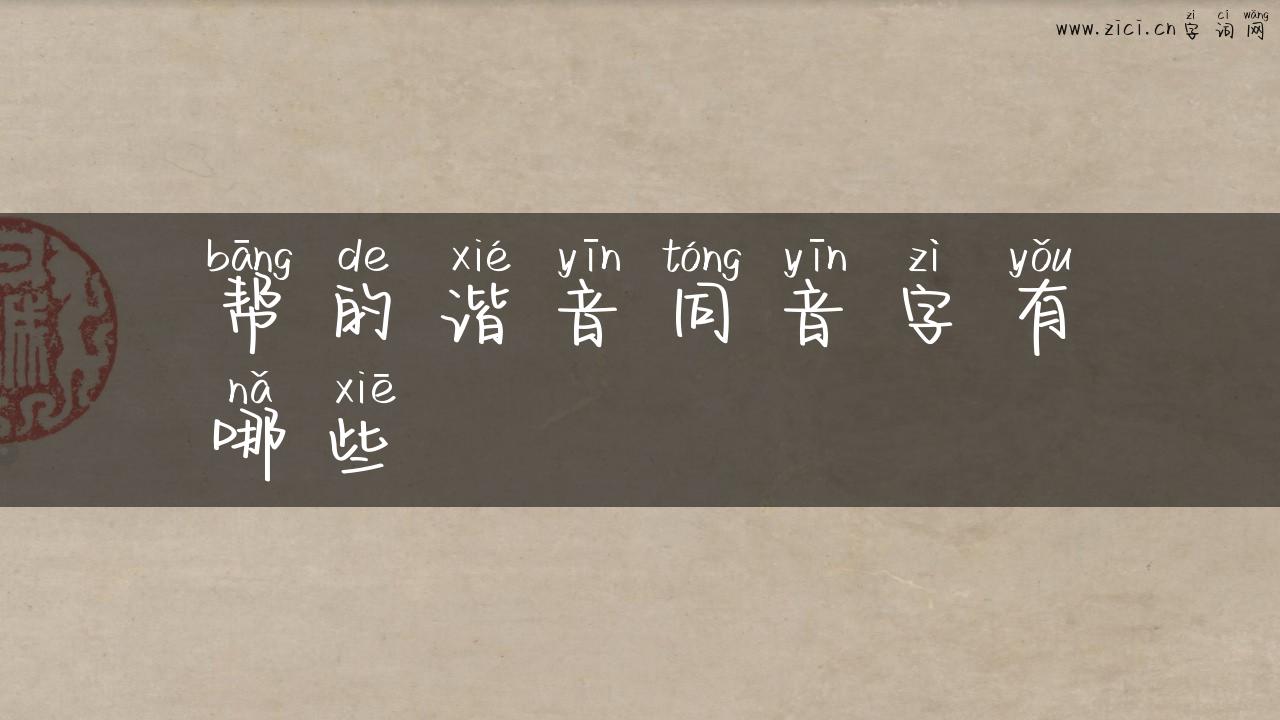 zì cí wǎng
www.zici.cn 字 词 网
bāng de xié yīn tóng yīn zì yǒu
帮 的 谐 音 同 音 字 有
nǎ xiē
哪 些